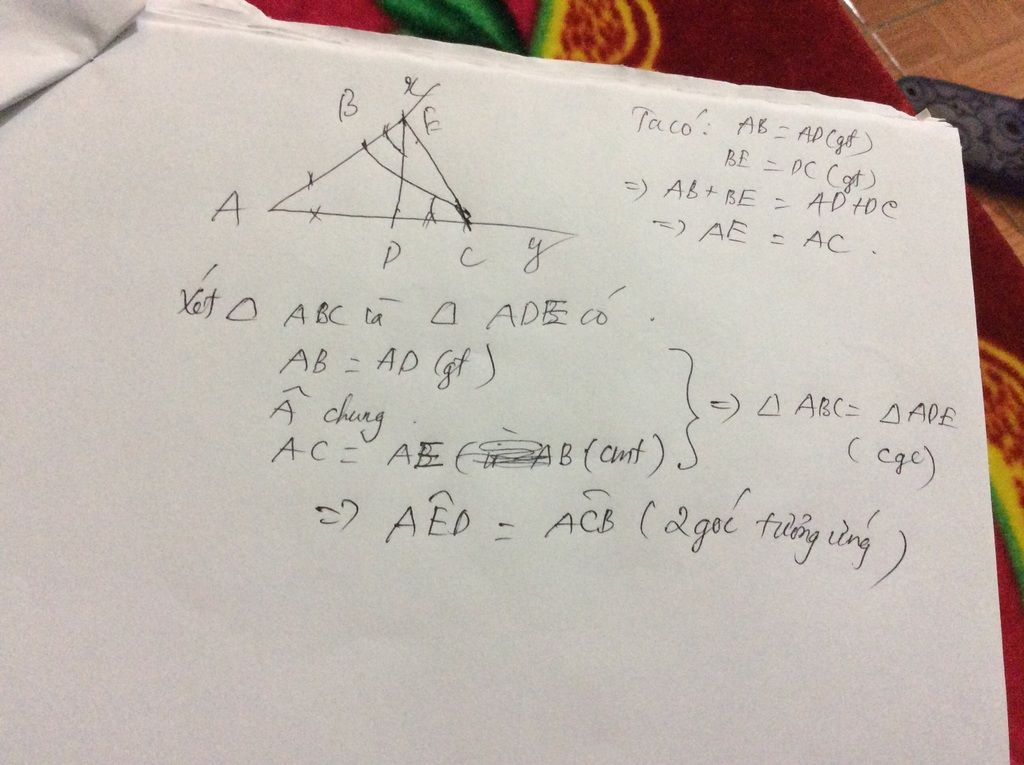 B
x
E
A
D
C
y
Ta có: AB = AD (gt)
BE = DC (gt)
=> AB + BE = AD + DC
=> AE = AC.
Xét △ ABC và △ ADE có.
AB = AD (gt)
Â chung.
AC = AE ( AB (cmt)
} => △ ABC = △ ADE
(cgc)
=> AÊD = AĈB (2 góc tưởng ứng)